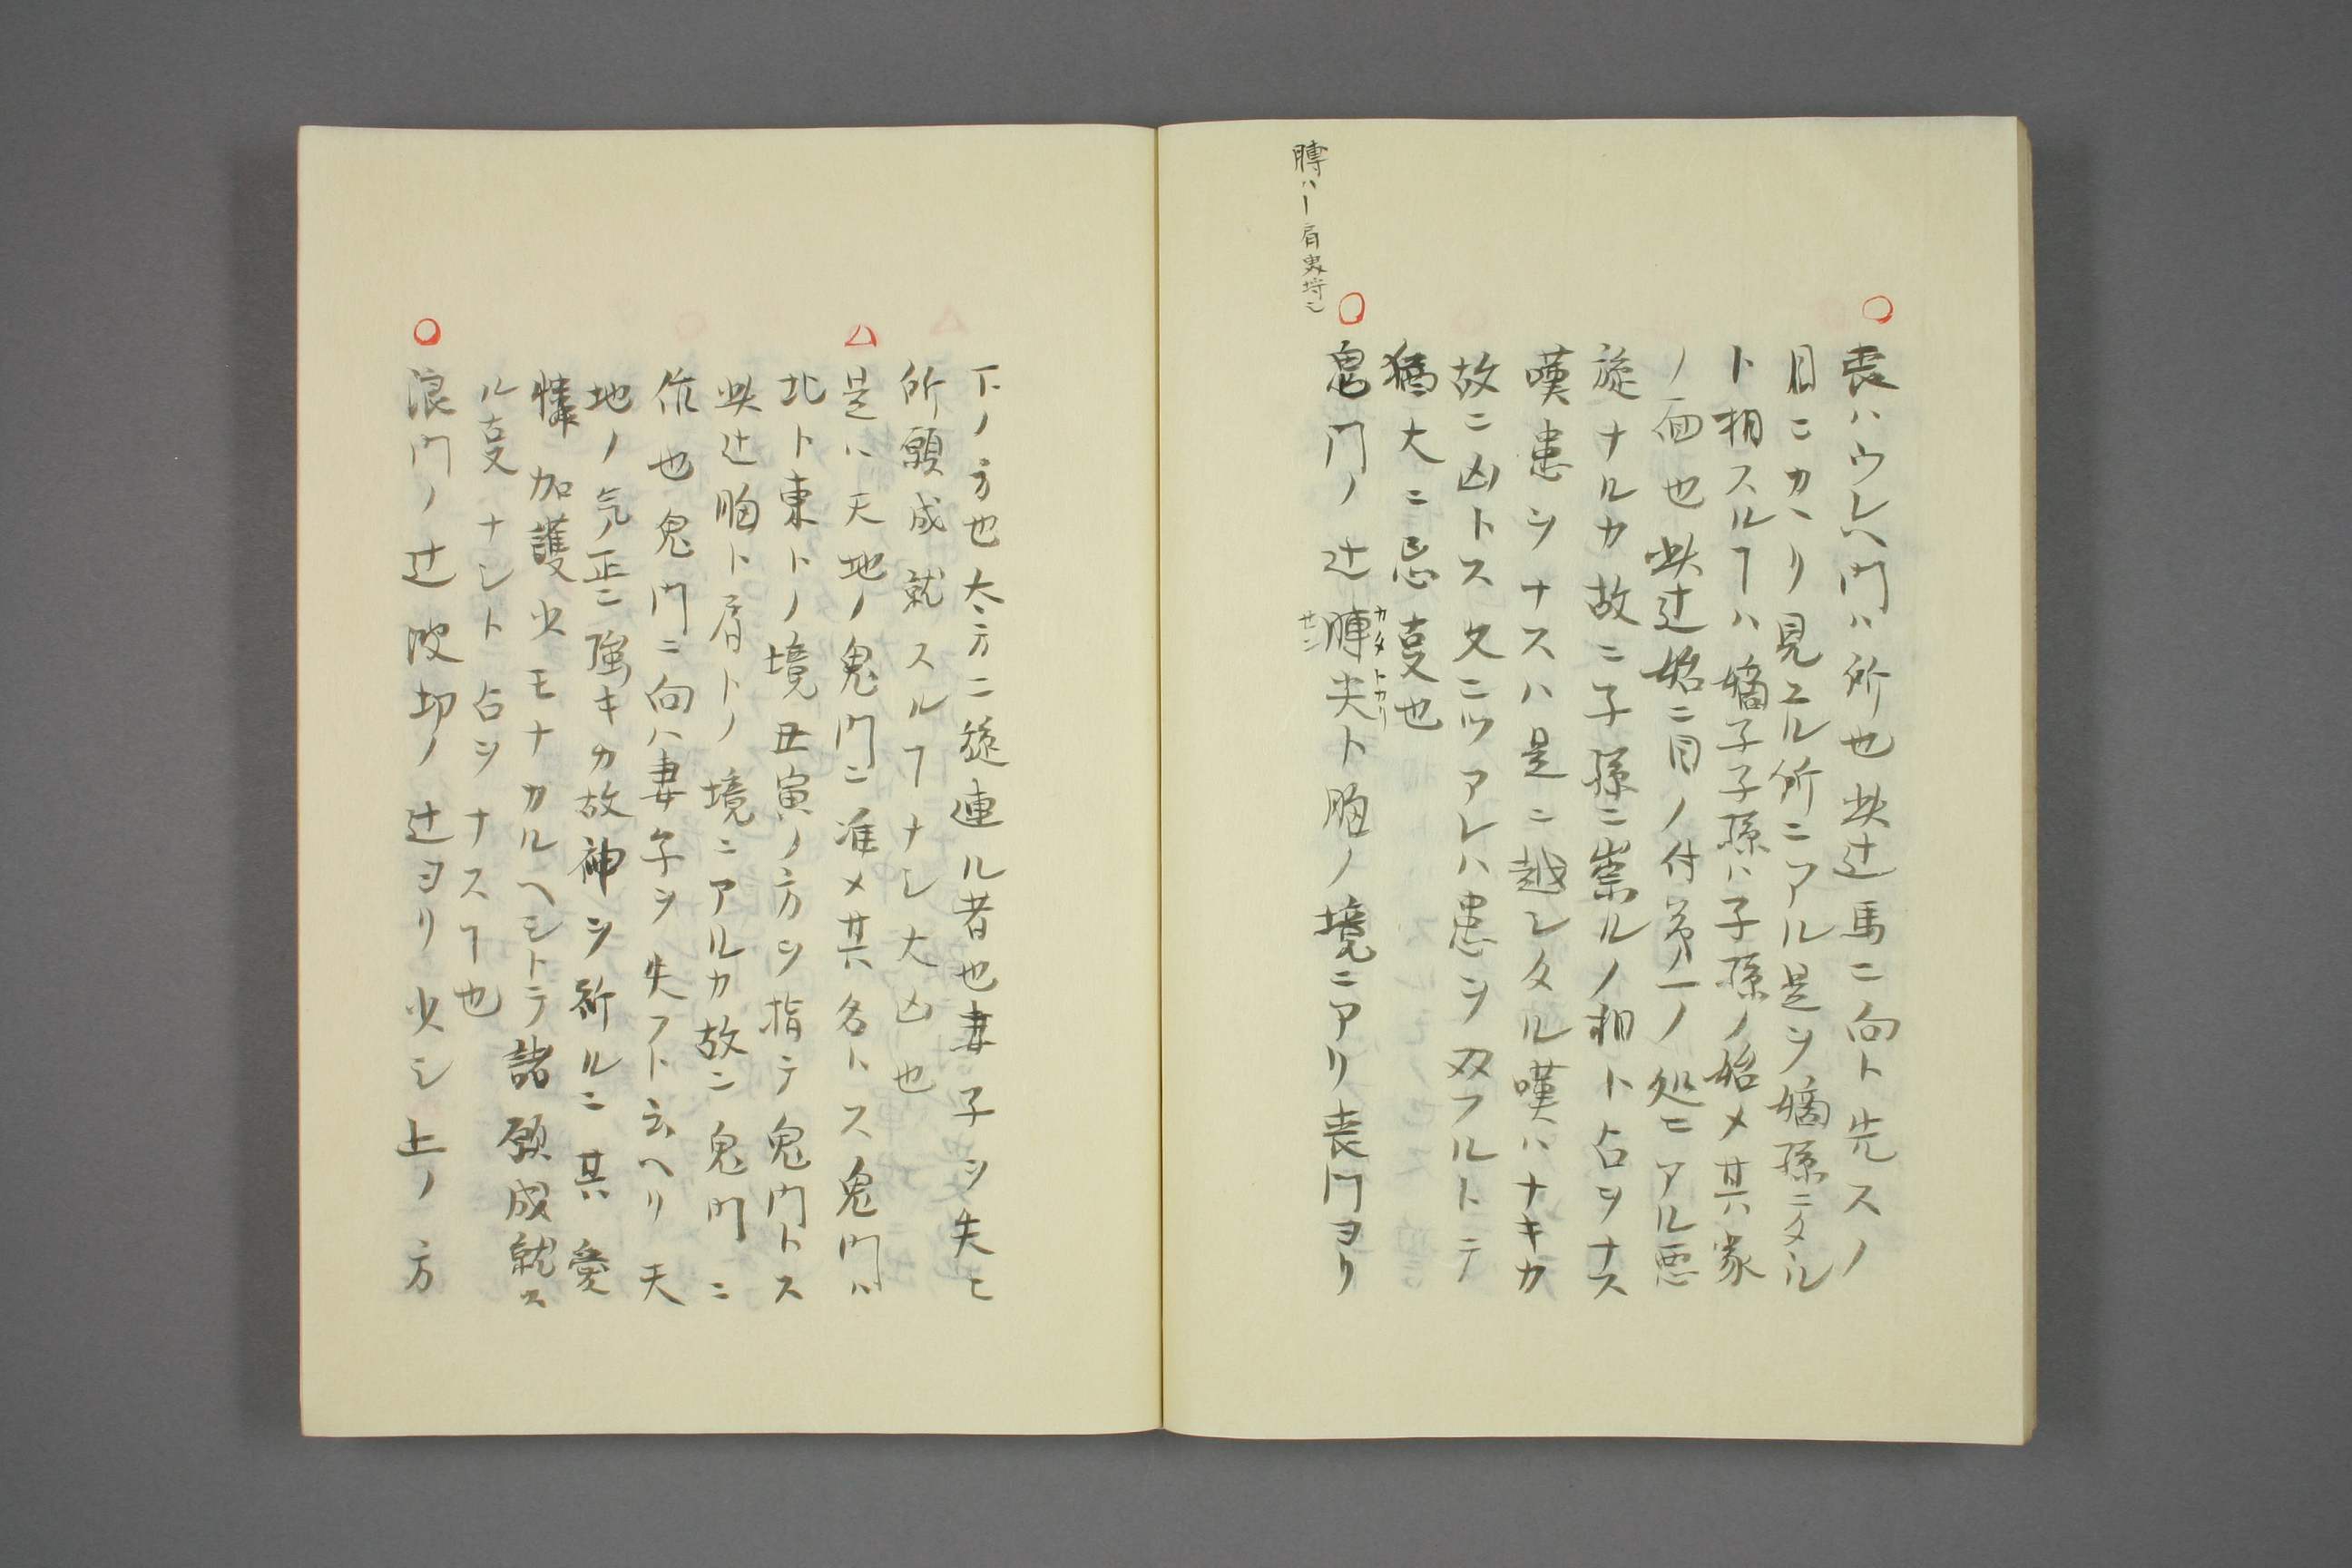 膞ハー肩曳埒ニ
○喪ハウレヘ門ハ所也此辻馬ニ向ト先スノ
目ニカヽリ見エル所ニアル是ヲ嫡孫ニタル
ト相スルヿハ嫡子子孫ハ子孫ノ始メ其ハ家
ノ面也此辻始ニ目ノ付第一ノ処ニアル悪
旋ナルカ故ニ子孫ニ祟ルノ相ト占ヲナス
嘆患ヲナスハ是ニ越シタル嘆ハナキカ
故ニ凶トス又ニツアレハ患ヲ双フルトテ
猶大ニ忌㕝也
○鬼門ノ辻膞尖ト胸ノ境ニアリ喪門ヨリ
カタトカリ
セン
下ノ方也太方ニ旋連ル者也妻子ヲ失ヒ
所願成就スルヿナシ大凶也
△是ハ天地ノ鬼門ニ准メ其名トス鬼門ハ
北ト東トノ境丑寅ノ方ヲ指テ鬼門トス
此辻胸ト肩トノ境ニアルカ故ニ鬼門ニ
依也鬼門ニ向ハ妻子ヲ失フト云ヘリ天
地ノ気ノ正ニ強キカ故神ヲ祈ルニ其愛
憐加護少モナカルヘシトテ諸願成就ス
ル㕝ナシト占ヲナスヿ也
○浪門ノ辻陂却ノ辻ヨリ少シ上ノ方